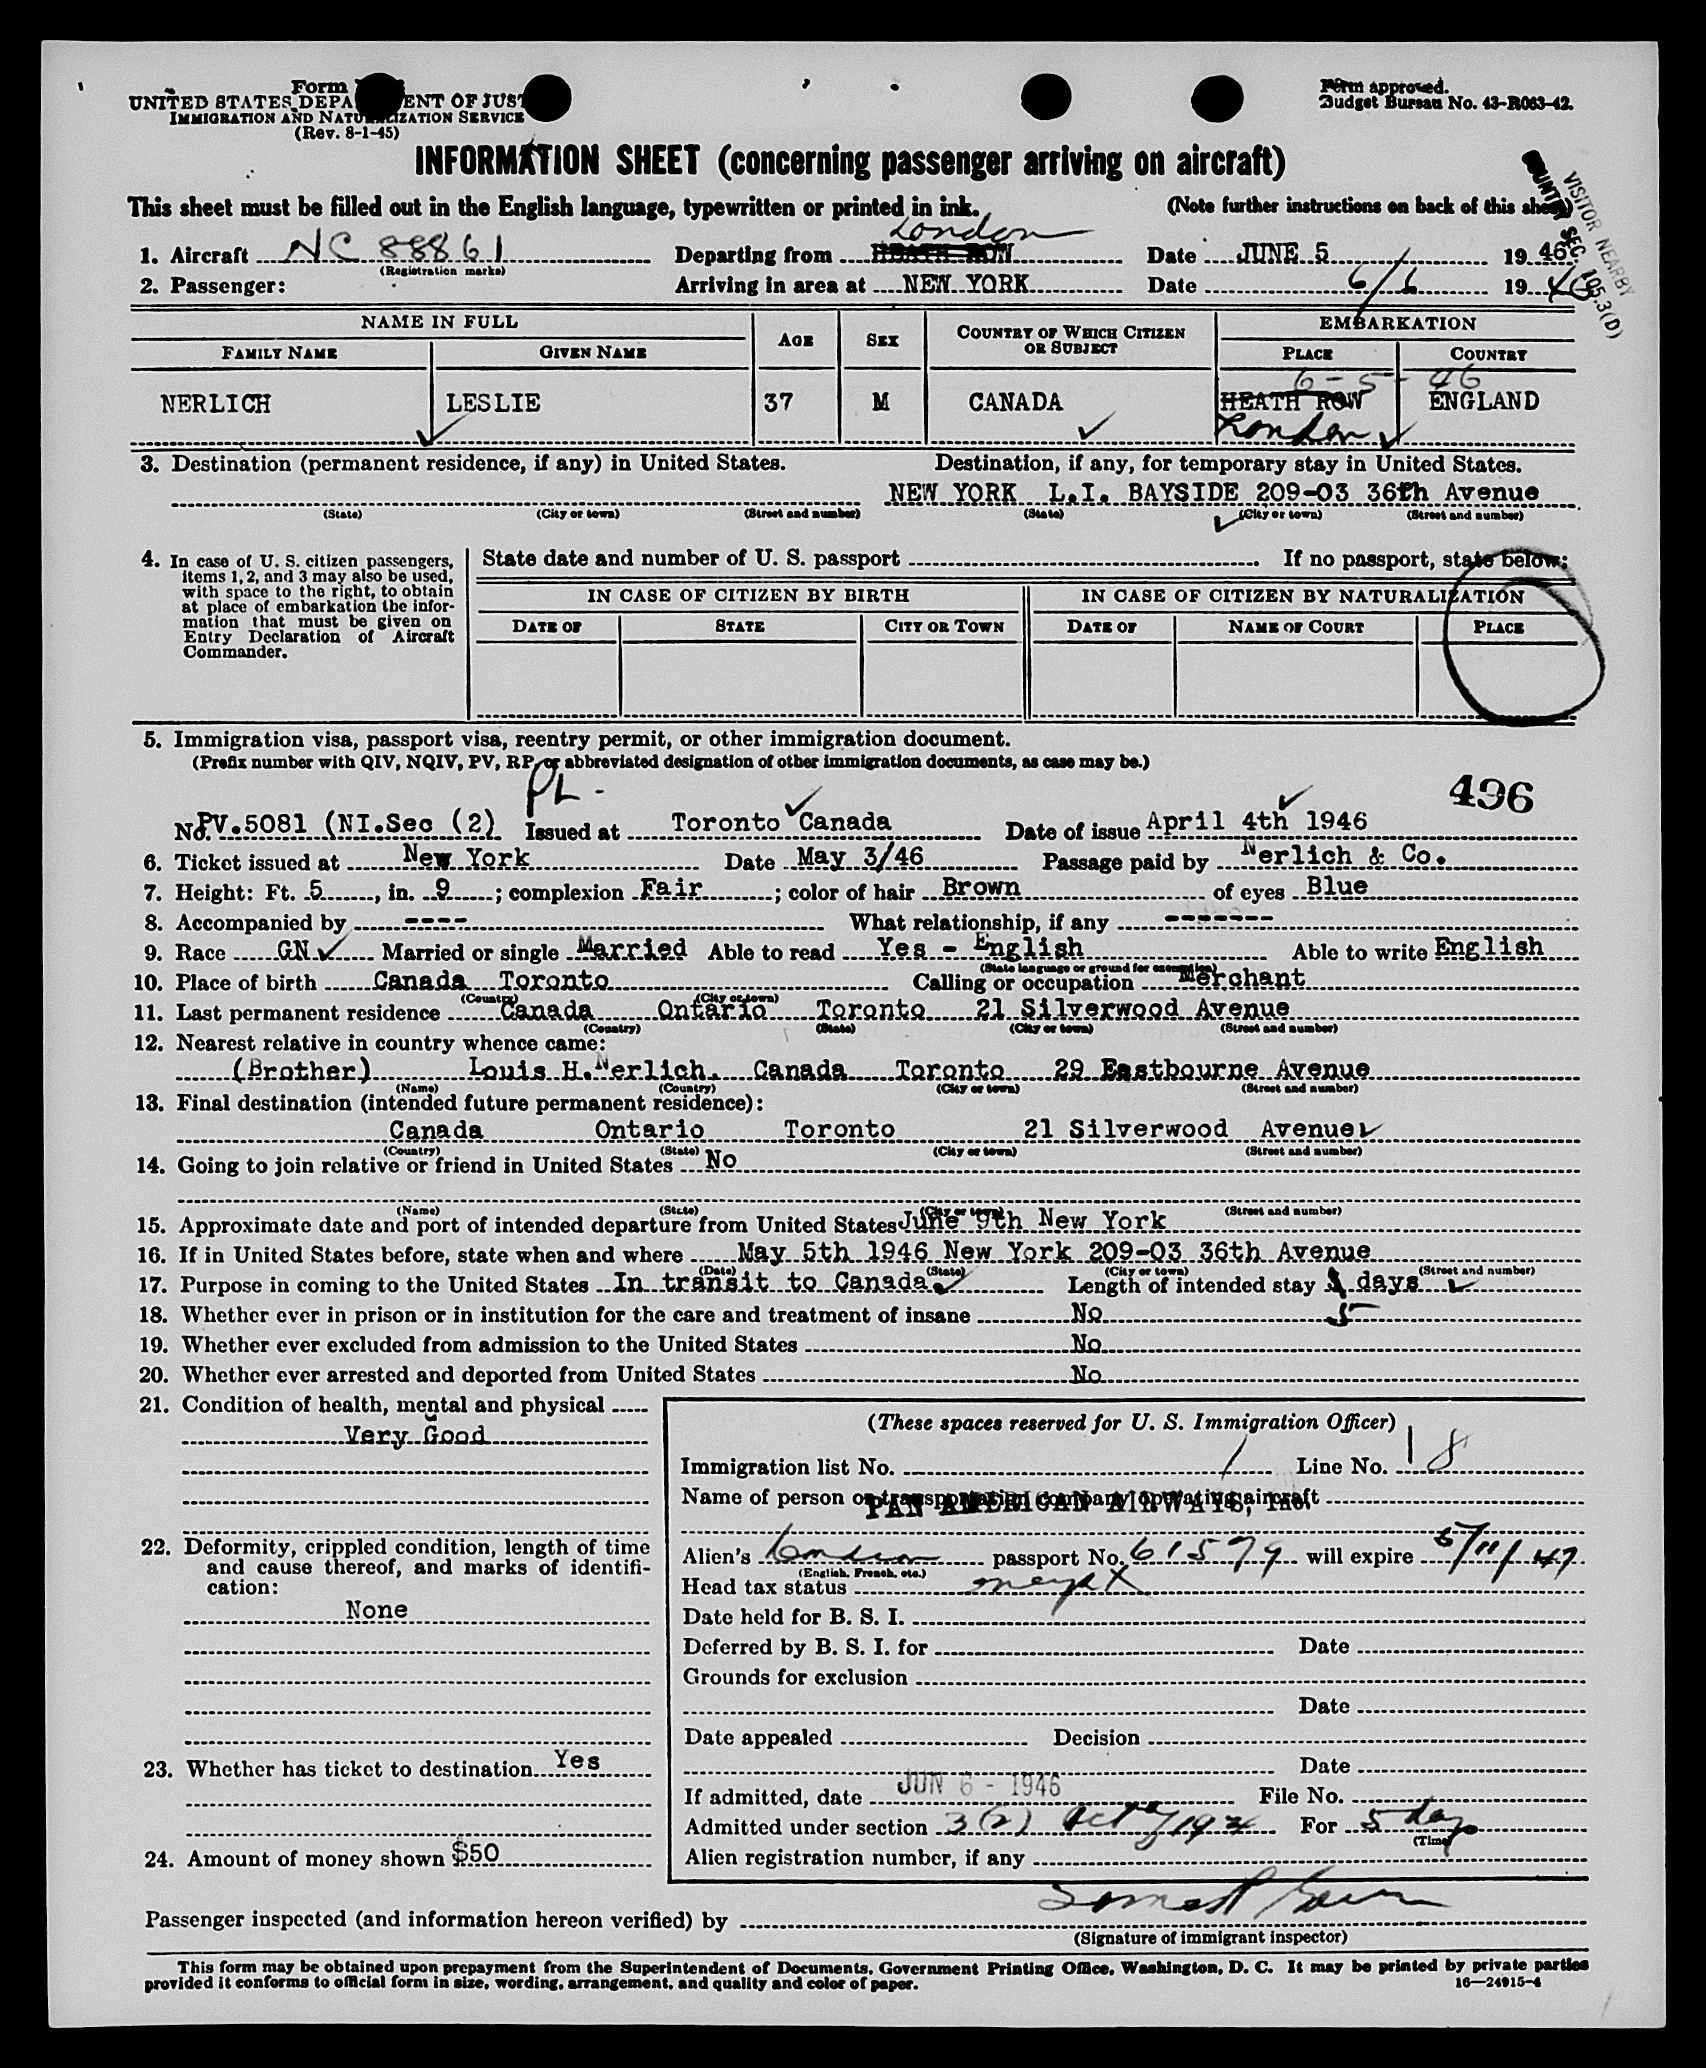 Form
UNITED STATES DEPA ENT OF JUST
IMMIGRATION AND NATURALIZATION SERVICE
(Rev. 8-1-45)
Form approved.
Budget Bureau No. 43-R083-42.
INFORMATION SHEET (concerning passenger arriving on aircraft)
This sheet must be filled out in the English language, typewritten or printed in ink.
(Note further instructions on back of this sheet)
VISITOR NEARBY
COUNTRY SEC 105.3(D)
London
1. Aircraft NC 88861 Departing from HEATH ROW Date JUNE 5 1946
(Registration marks)
2. Passenger: Arriving in area at NEW YORK Date 6/6 1946
NAME IN FULL
FAMILY NAME GIVEN NAME AGE SEX COUNTRY OF WHICH CITIZEN OR SUBJECT EMBARKATION
PLACE COUNTRY
6-5-46
NERLICH LESLIE 37 M CANADA HEATH ROW ENGLAND
London
3. Destination (permanent residence, if any) in United States. Destination, if any, for temporary stay in United States.
NEW YORK L.I. BAYSIDE 209-03 36th Avenue
(State) (City or town) (Street and number) (State) (City or town) (Street and number)
4. In case of U. S. citizen passengers, items 1, 2, and 3 may also be used, with space to the right, to obtain at place of embarkation the information that must be given on Entry Declaration of Aircraft Commander.
State date and number of U. S. passport If no passport, state below:
IN CASE OF CITIZEN BY BIRTH IN CASE OF CITIZEN BY NATURALIZATION
DATE OF STATE CITY OR TOWN DATE OF NAME OF COURT PLACE
5. Immigration visa, passport visa, reentry permit, or other immigration document.
(Prefix number with QIV, NQIV, PV, RP, or abbreviated designation of other immigration documents, as case may be.)
PL - 496
No. PV.5081 (NI.Sec (2) Issued at Toronto Canada Date of issue April 4th 1946
6. Ticket issued at New York Date May 3/46 Passage paid by Nerlich & Co.
7. Height: Ft. 5, in. 9; complexion Fair; color of hair Brown of eyes Blue
8. Accompanied by ---- What relationship, if any -------
9. Race GN Married or single Married Able to read Yes - English Able to write English
(State language or ground for exemption)
10. Place of birth Canada Toronto Calling or occupation Merchant
(Country) (City or town)
11. Last permanent residence Canada Ontario Toronto 21 Silverwood Avenue
(Country) (State) (City or town) (Street and number)
12. Nearest relative in country whence came:
(Brother) Louis H. Nerlich. Canada Toronto 29 Eastbourne Avenue
(Name) (Country) (City or town) (Street and number)
13. Final destination (intended future permanent residence):
Canada Ontario Toronto 21 Silverwood Avenue
(Country) (State) (City or town) (Street and number)
14. Going to join relative or friend in United States No
(Name) (State) (City or town) (Street and number)
15. Approximate date and port of intended departure from United States June 9th New York
16. If in United States before, state when and where May 5th 1946 New York 209-03 36th Avenue
(Date) (State) (City or town) (Street and number)
17. Purpose in coming to the United States In transit to Canada. Length of intended stay days
5
18. Whether ever in prison or in institution for the care and treatment of insane No
19. Whether ever excluded from admission to the United States No
20. Whether ever arrested and deported from United States No
21. Condition of health, mental and physical
Very Good
22. Deformity, crippled condition, length of time and cause thereof, and marks of identification:
None
23. Whether has ticket to destination Yes
24. Amount of money shown $50
(These spaces reserved for U. S. Immigration Officer)
Immigration list No. 1 Line No. 18
Name of person or transportation company operating aircraft
PAN AMERICAN AIRWAYS, Inc.
Alien's Canadian passport No. 61579 will expire 5/11/47
(English, French, etc.)
Head tax status
Date held for B. S. I.
Deferred by B. S. I. for Date
Grounds for exclusion
Date
Date appealed Decision
Date
If admitted, date JUN 6 - 1946 File No.
Admitted under section 3(2) Act of 1924 For 5 days
(Time)
Alien registration number, if any
Passenger inspected (and information hereon verified) by
(Signature of immigrant inspector)
This form may be obtained upon prepayment from the Superintendent of Documents, Government Printing Office, Washington, D. C. It may be printed by private parties
provided it conforms to official form in size, wording, arrangement, and quality and color of paper. 16—24915-4